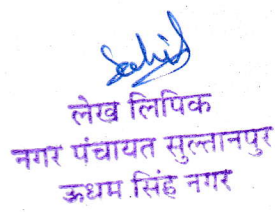 लेख लिपिक
नगर पंचायत सुल्तानपुर
ऊधम सिंह नगर